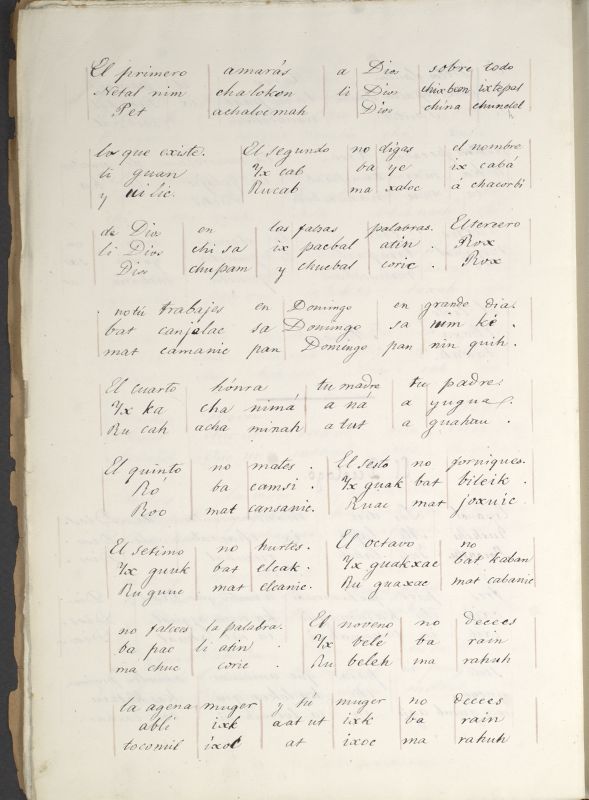 El primero amarás a Dios sobre todo
Netal nim chaloken li Dios chixbeen ixtepal
Pet achalocmah Dios china chundel
lo que existe. El segundo no digas el nombre
li guan Yx cab ba ye ix cabá
y uilic. Rucab ma xaloc á chacorbi
de Dios en las falsas palabras. El tercero
li Dios chi sa ix pacbal atin. Rox
Dios chupam y chucbal coric. Rox
no tú trabajes en Domingo en grande dia.
bat canjelac sa Domingo sa nim ké.
mat camanic pan Domingo pan nin quih.
El cuarto hónra tu madre tu padre.
Yx ka cha nimá a ná a yugua.
Ru cah acha minah a tut a guahau.
El quinto no mates. El sesto no forniques.
Ró ba camsi. Yx guak bat bileik.
Roo mat cansanic. Ruac mat joxuic.
El setimo no hurtes. El octavo no
Yx guuk bat elcak. Yx guakxac bat kaban
Ru guuc mat elcanic. Ru guaxac mat cabanic
no falces la palabra. El noveno no decees
ba pac li atin. Yx belé ba rain
ma chuc coric. Ru beleh ma rahuh
la agena muger y tú muger no decees
abli ixk aat ut ixk ba rain
toconil ixoc at ixoc ma rahuh